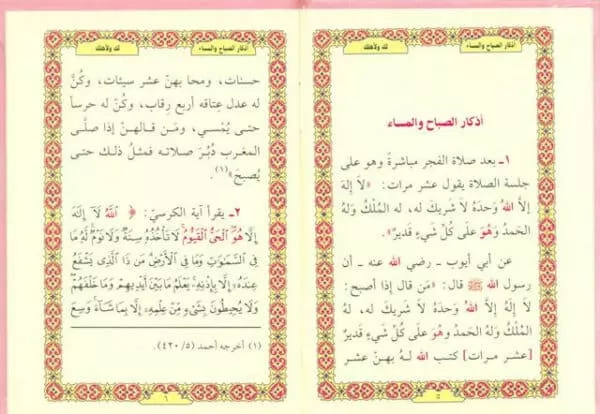 أذكار الصباح والمساء
لك ولأهلك
أذكار الصباح والمساء
١ـ بعد صلاة الفجر مباشرةً وهو على
جلسة الصلاة يقول عشر مرات: «لا إلهَ
إلاَّ اللهُ وَحدَهُ لا شريكَ له، له المُلْكُ وَلهُ
الحَمدُ وَهوَ عَلَى كُلِّ شَيءٍ قَديرٌ».
عن أبي أيوب ـ رضي الله عنه ـ أن
رسول الله ﷺ قال: «مَن قال إذا أصبح:
لا إلَهَ إلاَّ اللهُ وَحدَهُ لا شَريكَ له، لهُ
المُلكُ وَلهُ الحَمدُ وهوَ عَلَى كُلِّ شَيْءٍ قَديرٌ
[عشر مرات] كتب الله لـهُ بهـنّ عشر
٥
أذكار الصباح والمساء
لك ولأهلك
حسنات، ومحا بهنّ عشر سيئات، وكُنَّ
له عدل عِتاقه أربع رقاب، وكُنّ له حرساً
حتـى يُمْسـي، ومَـن قـالهـنّ إذا صلَّـى
المغـرب دُبُـرَ صـلاتـه فمثـلُ ذلـك حتـى
يُصبحَ»(١).
٢ـ يقرأ آية الكرسيّ: ﴿اللَّهُ لَآ إِلَٰهَ
إِلَّا هُوَ الْحَيُّ الْقَيُّومُ لَا تَأْخُذُهُ سِنَةٌ وَلَا نَوْمٌ لَّهُ مَا
فِي السَّمَٰوَٰتِ وَمَا فِي الْأَرْضِ مَن ذَا الَّذِي يَشْفَعُ
عِندَهُ إِلَّا بِإِذْنِهِ يَعْلَمُ مَا بَيْنَ أَيْدِيهِمْ وَمَا خَلْفَهُمْ
وَلَا يُحِيطُونَ بِشَيْءٍ مِّنْ عِلْمِهِ إِلَّا بِمَا شَآءَ وَسِعَ
(١) أخرجه أحمد (٤٢٠/٥).
٦